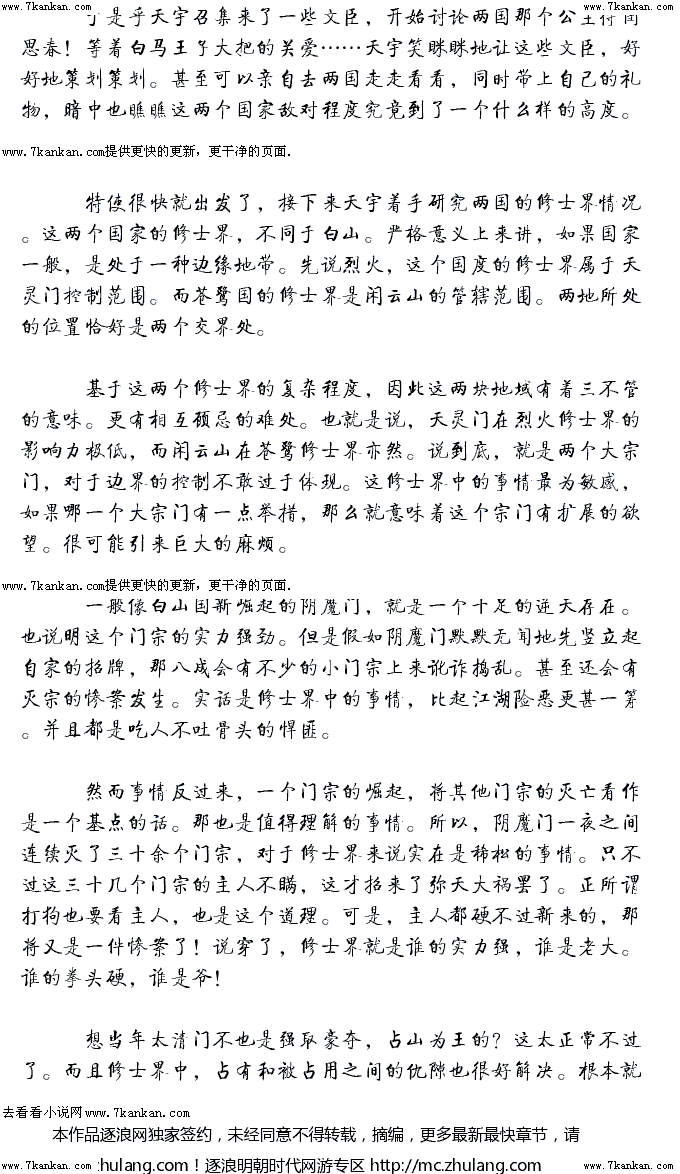 www.7kankan.com www.7kankan.com
是乎天宇召集来了一些文臣，开始讨论两国那个公主待闺
思春！等着白马王子大把的关爱……天宇笑眯眯地让这些文臣，好
好地策划策划。甚至可以亲自去两国走走看看，同时带上自己的礼
物，暗中也瞧瞧这两个国家敌对程度究竟到了一个什么样的高度。
www.7kankan.com提供更快的更新，更干净的页面.
特使很快就出发了，接下来天宇着手研究两国的修士界情况
。这两个国家的修士界，不同于白山。严格意义上来讲，如果国家
一般，是处于一种边缘地带。先说烈火，这个国度的修士界属于天
灵门控制范围。而苍鹭国的修士界是闲云山的管辖范围。两地所处
的位置恰好是两个交界处。
基于这两个修士界的复杂程度，因此这两块地域有着三不管
的意味。更有相互顾忌的难处。也就是说，天灵门在烈火修士界的
影响力极低，而闲云山在苍鹭修士界亦然。说到底，就是两个大宗
门，对于边界的控制不敢过于体现。这修士界中的事情最为敏感，
如果哪一个大宗门有一点举措，那么就意味着这个宗门有扩展的欲
望。很可能引来巨大的麻烦。
www.7kankan.com提供更快的更新，更干净的页面.
一般像白山国新崛起的阴魔门，就是一个十足的逆天存在。
也说明这个门宗的实力强劲。但是假如阴魔门默默无闻地先竖立起
自家的招牌，那八成会有不少的小门宗上来讹诈捣乱。甚至还会有
灭宗的惨案发生。实话是修士界中的事情，比起江湖险恶更甚一筹
。并且都是吃人不吐骨头的悍匪。
然而事情反过来，一个门宗的崛起，将其他门宗的灭亡看作
是一个基点的话。那也是值得理解的事情。所以，阴魔门一夜之间
连续灭了三十余个门宗，对于修士界来说实在是稀松的事情。只不
过这三十几个门宗的主人不瞒，这才招来了弥天大祸罢了。正所谓
打狗也要看主人，也是这个道理。可是，主人都硬不过新来的，那
将又是一件惨案了！说穿了，修士界就是谁的实力强，谁是老大。
谁的拳头硬，谁是爷！
想当年太清门不也是强取豪夺，占山为王的？这太正常不过
了。而且修士界中，占有和被占用之间的仇隙也很好解决。根本就
去看看小说网www.7kankan.com
本作品逐浪网独家签约，未经同意不得转载，摘编，更多最新最快章节，请
www.7kankan.com zhulang.com！逐浪明朝时代网游专区 http://mc.zhulang.com www.7kankan.com